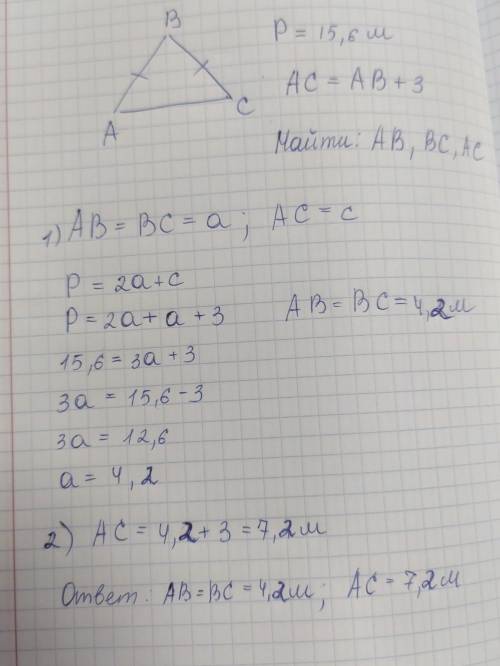 B
A
C
P = 15,6 м
AC = AB + 3
Найти: AB, BC, AC
1) AB = BC = a; AC = c
P = 2a + c
P = 2a + a + 3
AB = BC = 4,2 м
15,6 = 3a + 3
3a = 15,6 - 3
3a = 12,6
a = 4,2
2) AC = 4,2 + 3 = 7,2 м
Ответ: AB = BC = 4,2 м; AC = 7,2 м